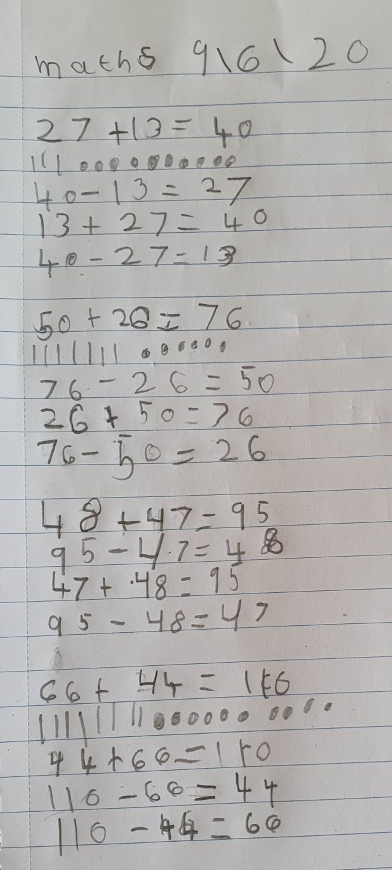 maths 9\6\20
27 + 13 = 40
40 - 13 = 27
13 + 27 = 40
40 - 27 = 13
50 + 26 = 76
76 - 26 = 50
26 + 50 = 76
76 - 50 = 26
48 + 47 = 95
95 - 47 = 48
47 + 48 = 95
95 - 48 = 47
66 + 44 = 110
44 + 66 = 110
110 - 66 = 44
110 - 44 = 66